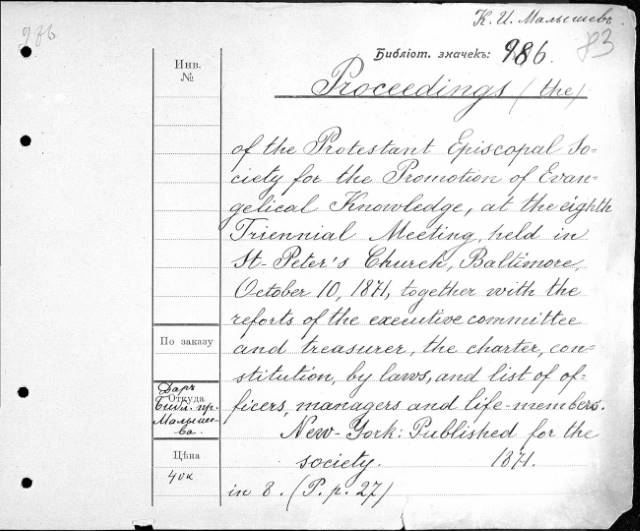 986
К. И. Малышевъ
83
Инв.
№
Библіот. значекъ: 986.
Proceedings (the)
of the Protestant Episcopal So=
ciety for the Promotion of Evan=
gelical Knowledge, at the eighth
Triennial Meeting, held in
St-Peter's Church, Baltimore,
October 10, 1871, together with the
reports of the executive committee
По заказу
and treasurer, the charter, con=
stitution, by laws, and list of of=
Даръ
Откуда
Библ. пр.
Малыше-
ва.
ficers, managers and life-members.
New-York: Published for the
Цѣна
society. 1871.
40к
in 8. (P. p. 27)